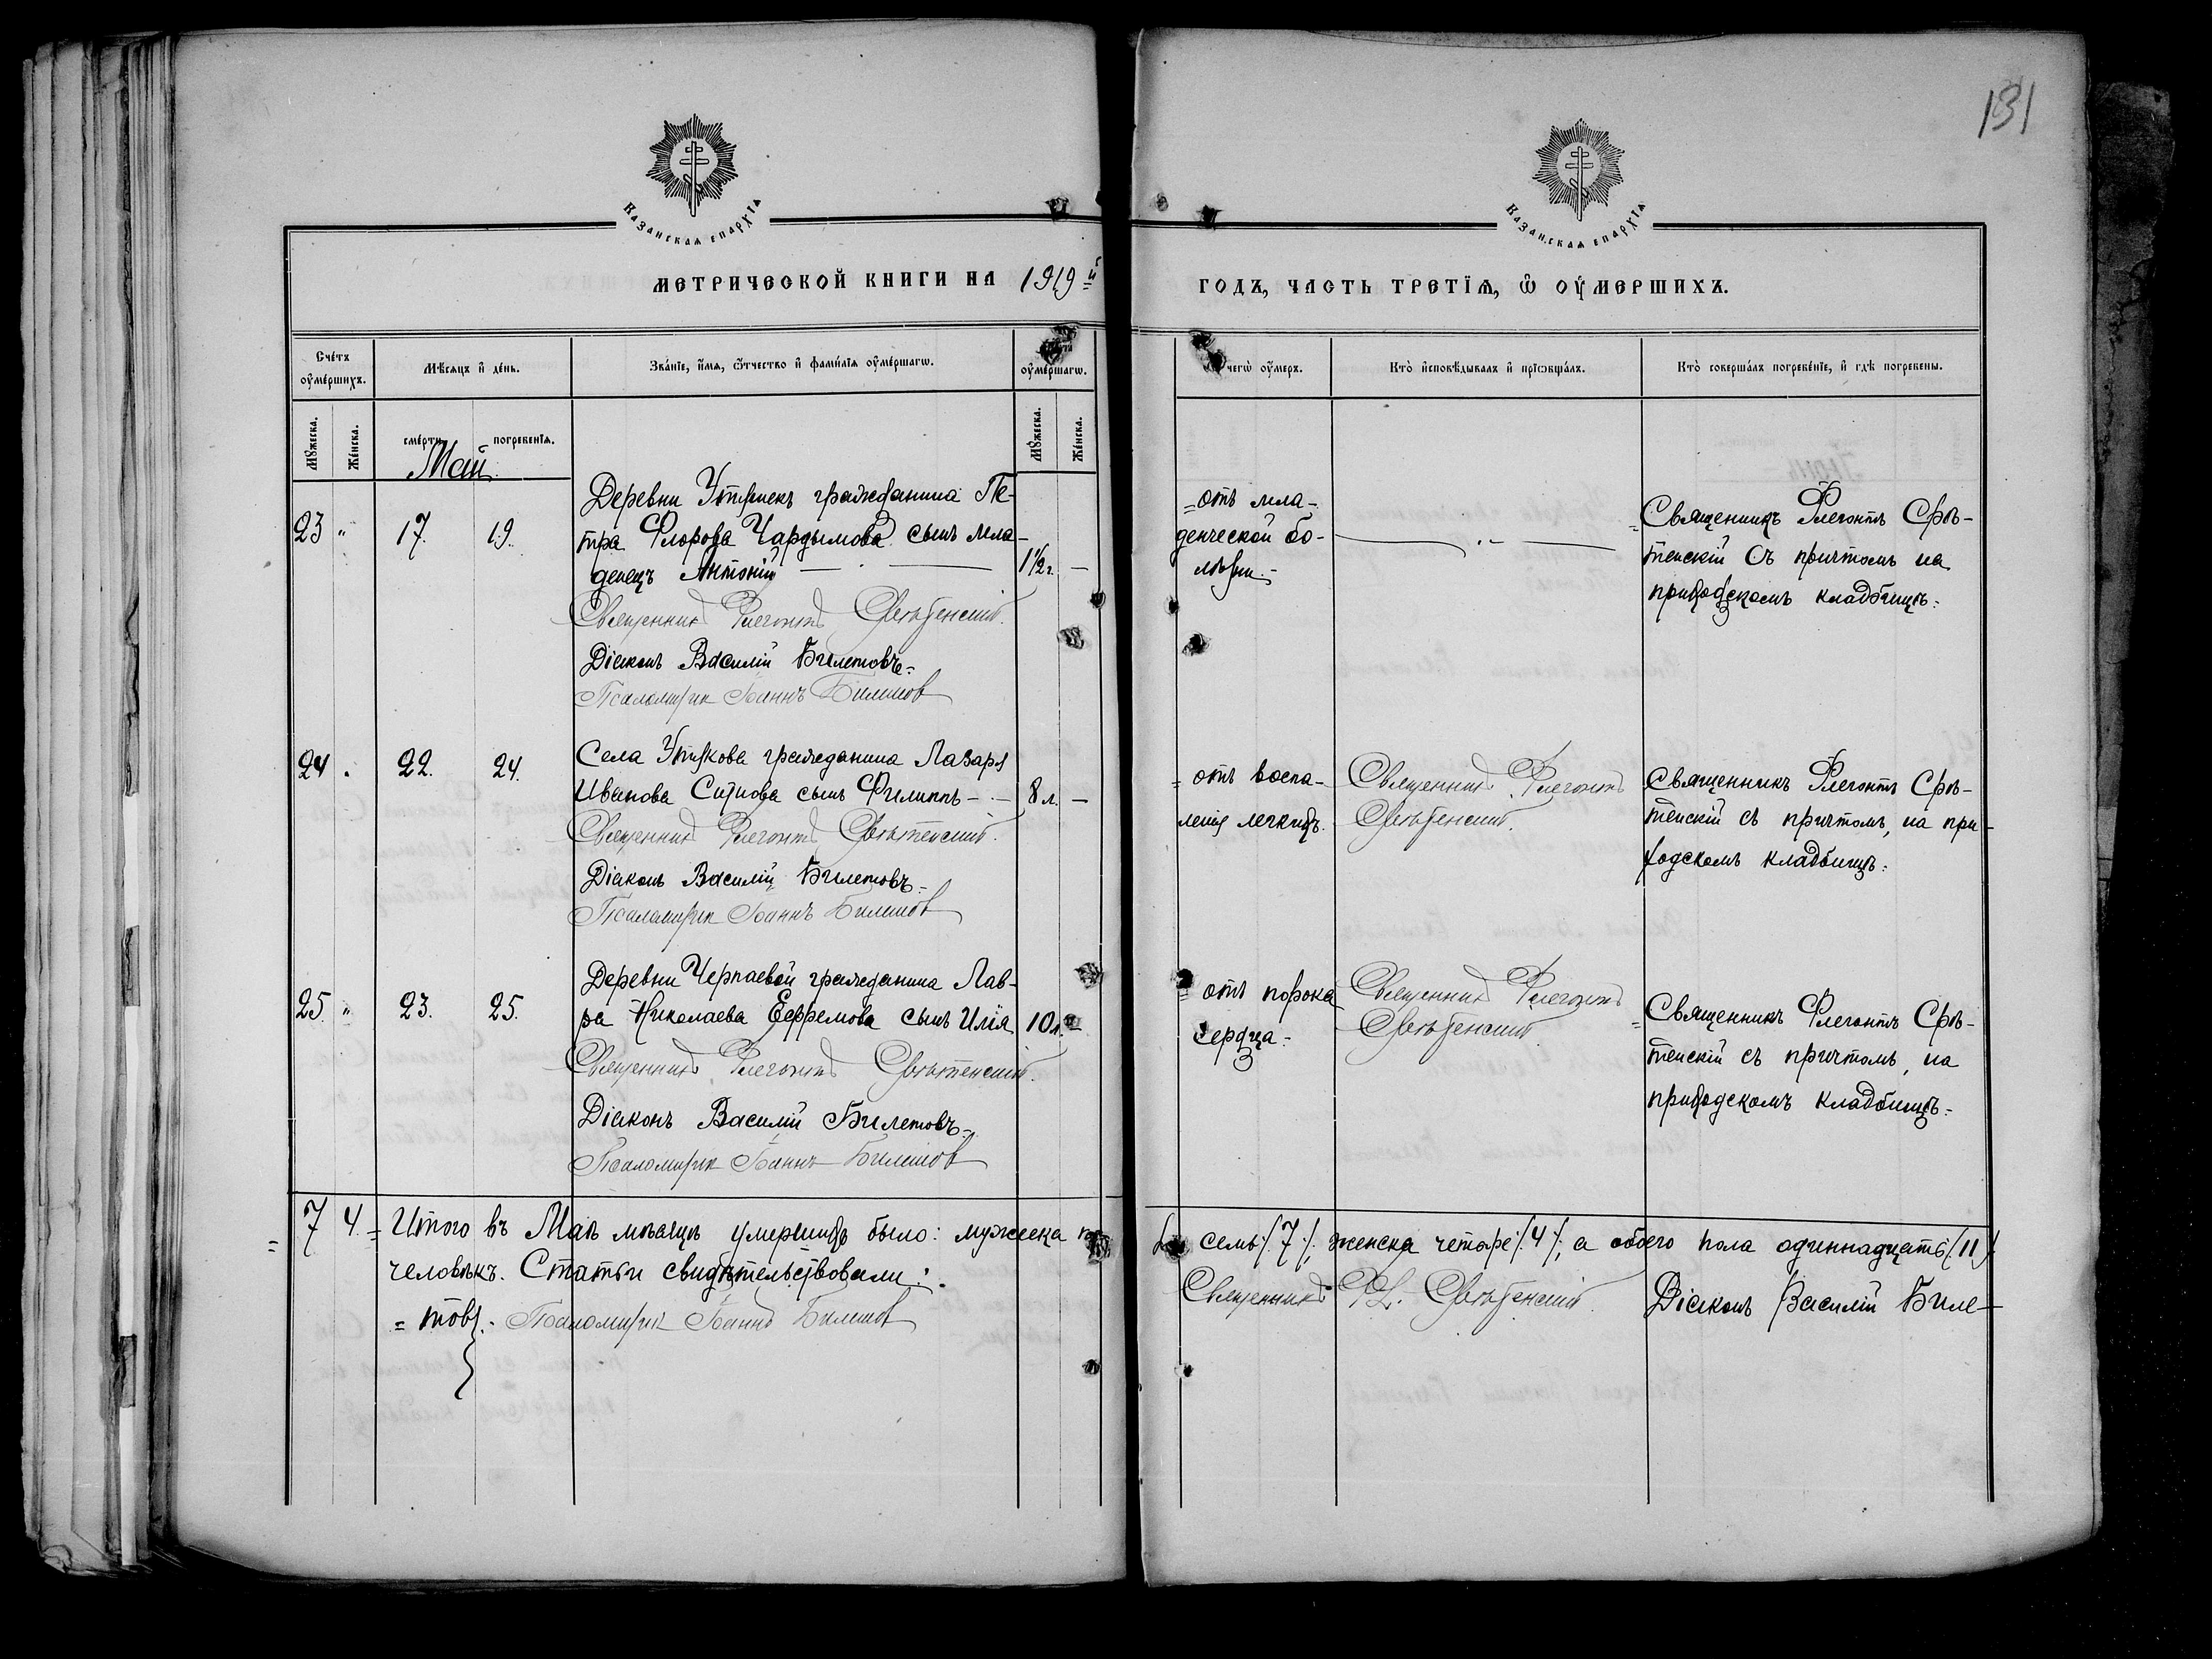 131
Казанская епархїя
Казанская епархїя
МЕТРИЧЕСКОЙ КНИГИ НА 1919й
ГОДЪ, ЧАСТЬ ТРЕТЇЯ, Ѿ ОУМЕРШИХЪ.
Счетъ оумершихъ.
Мѣсяцъ и день.
Званїе, имя, отчество и фамилїя оумершагѡ.
оумершагѡ.
чегѡ оумеръ.
Кто исповѣдывалъ и прїѡбщалъ.
Кто совершалъ погребенїе, и гдѣ погребены.
Мужеска.
Женска.
смерти
погребенїя.
Мужеска.
Женска.
Май.
23 " 17. 19.
Деревни гражданина Пе-
тра Флорова Чардымова сынъ мла-
денецъ Антоній 1½ г. —
Священникъ Флегонтъ Срѣтенскій.
Діаконъ Василій Билетовъ=
Псаломщик Іоаннъ Билетов
= отъ мла-
денческой бо-
лѣзни.-
Священникъ Флегонтъ Срѣ-
тенскій съ причтомъ на
приходскомъ кладбищѣ.=
24 . 22. 24.
Села Утякова гражданина Лазаря
Иванова Ситнова сынъ Филиппъ — 8 л. —
Священникъ Флегонтъ Срѣтенскій.
Діаконъ Василій Билетовъ=
Псаломщик Іоаннъ Билетов
= отъ воспа-
ленія легкихъ.
Священникъ Флегонтъ
Срѣтенскій.
Священникъ Флегонтъ Срѣ-
тенскій съ причтомъ, на при-
ходскомъ кладбищѣ.=
25. " 23. 25.
Деревни Черпаевой гражданина Лав-
ра Николаева Ефремова сынъ Илія 10 л. —
Священникъ Флегонтъ Срѣтенскій.
Діаконъ Василій Билетовъ=
Псаломщик Іоаннъ Билетов
= отъ порока
сердца.=
Священникъ Флегонтъ
Срѣтенскій.
= Священникъ Флегонтъ Срѣ-
тенскій съ причтомъ, на
приходскомъ кладбищѣ.=
= 7 4 = Итого въ Маѣ мѣсяцѣ умершихъ было: мужеска семь /.7./, женска четыре /.4./, а обоего пола одиннадцать /.11./
человѣкъ. Статьи свидѣтельствовали: Священникъ Фл. Срѣтенскій. Діаконъ Василій Биле-
= товъ.- Псаломщик Іоаннъ Билетов